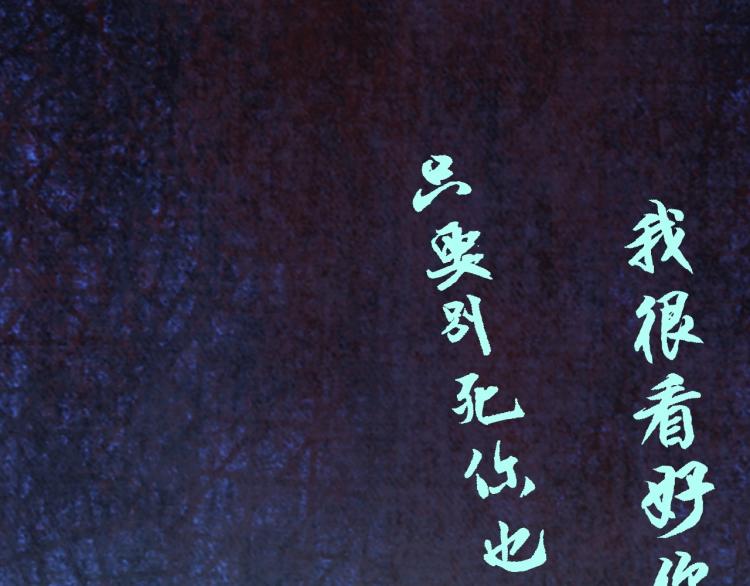 我很看好你
只要别死你也